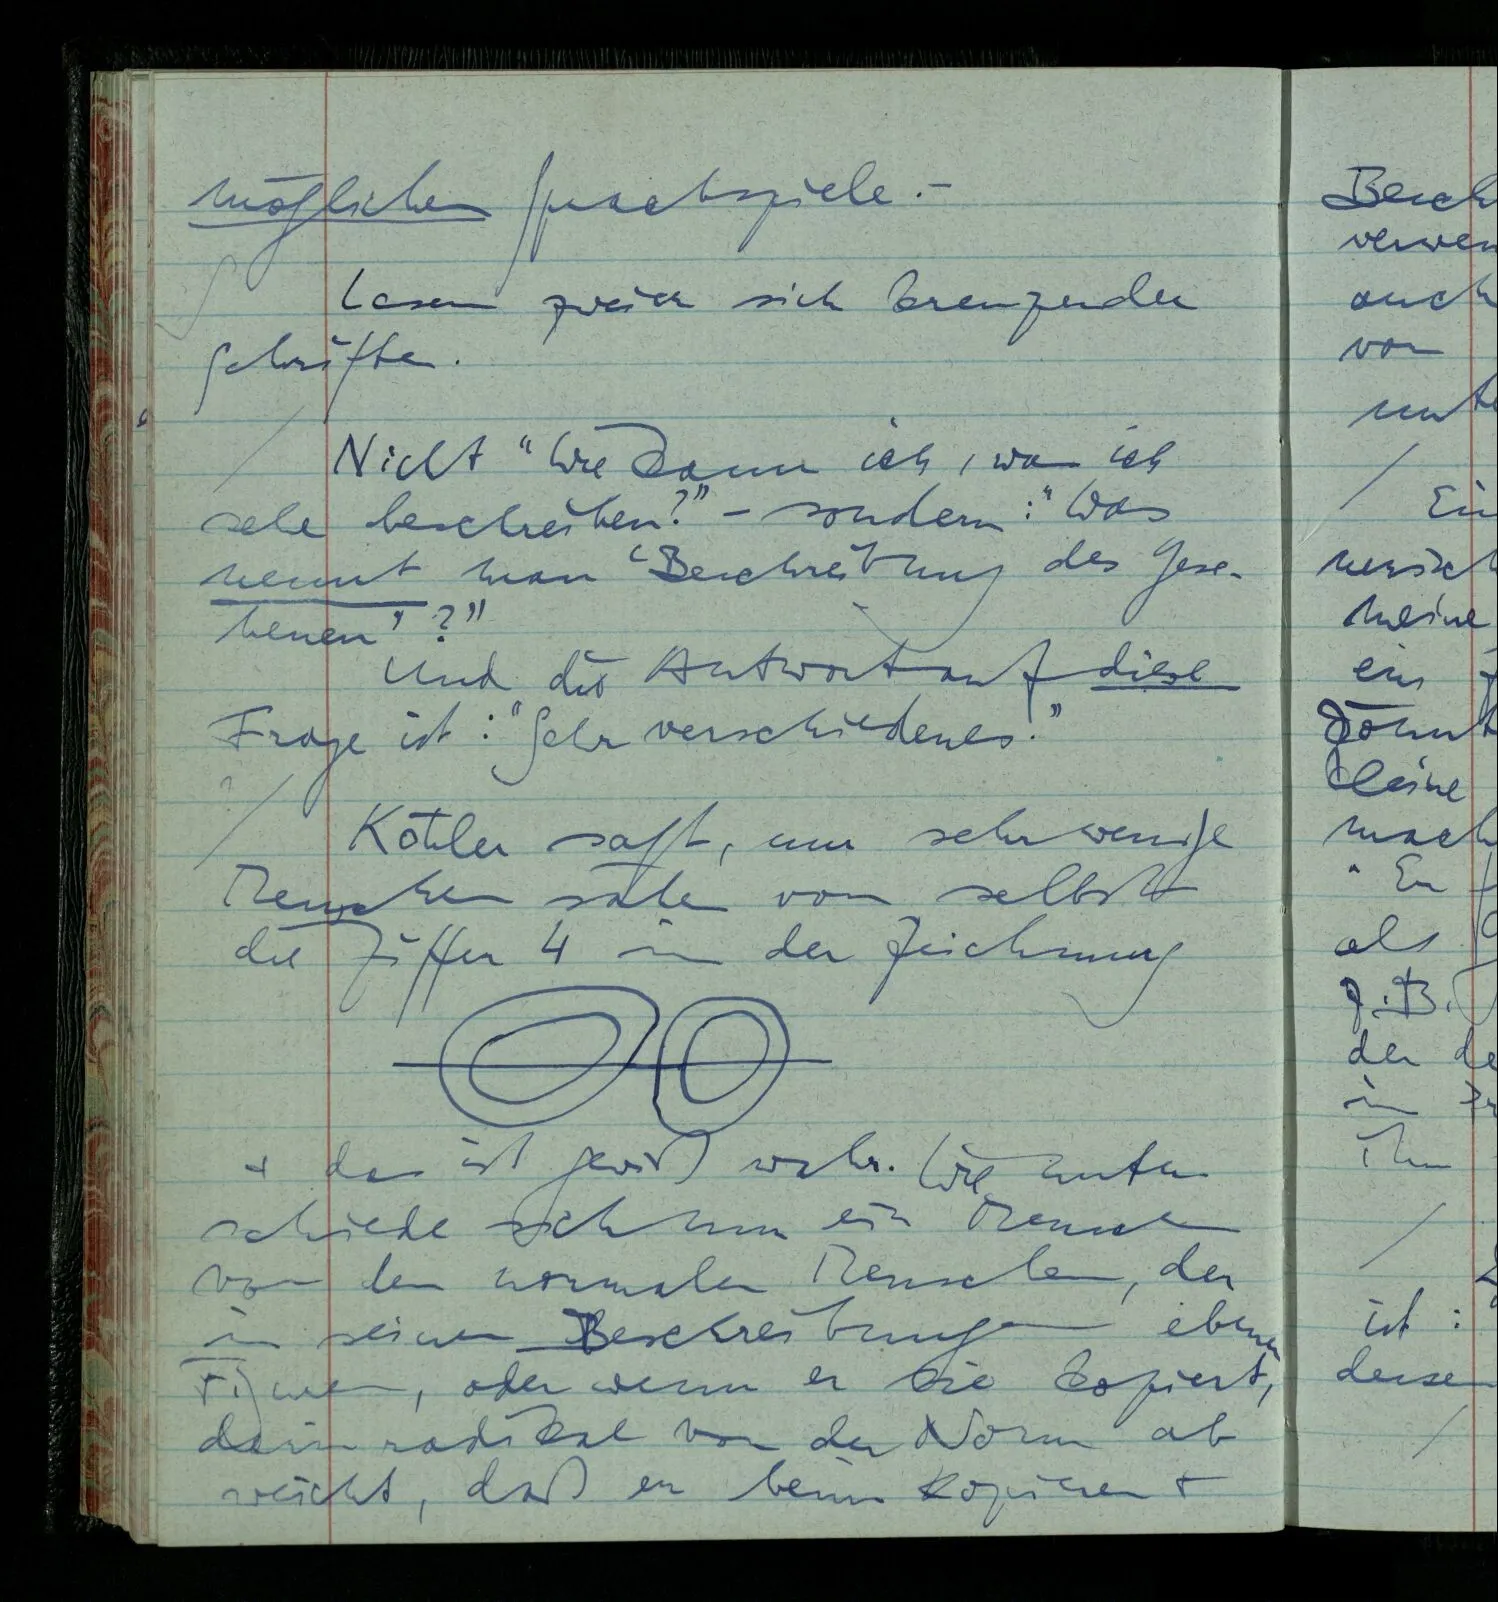 möglichen Sprachspiele. –
Lesen zweier sich kreuzender
Schriften.
Nicht “Wie kann ich, was ich
sehe beschreiben?” – sondern: “Was
nennt man ‘Beschreibung des Gese-
henen’?”
Und die Antwort auf diese
Frage ist: “Sehr verschiedenes.”
?
Köhler sagt, nur sehr wenige
Menschen sähen von selbst
die Ziffer 4 in der Zeichnung
+ das ist gewiß wahr. Wie unter
schiede sich nun ein Mensch
von dem normalen Menschen, der
in seinen Beschreibungen ebener
Figuren, oder wenn er sie kopiert,
darin radikal von der Norm ab
weicht, daß er beim Kopieren +
Besch
verwen
auch
von
unte
Ein
versch
meine
ein
könnt
kleine
mach
als
z.B.
der de
in
ihn
ist :
desse